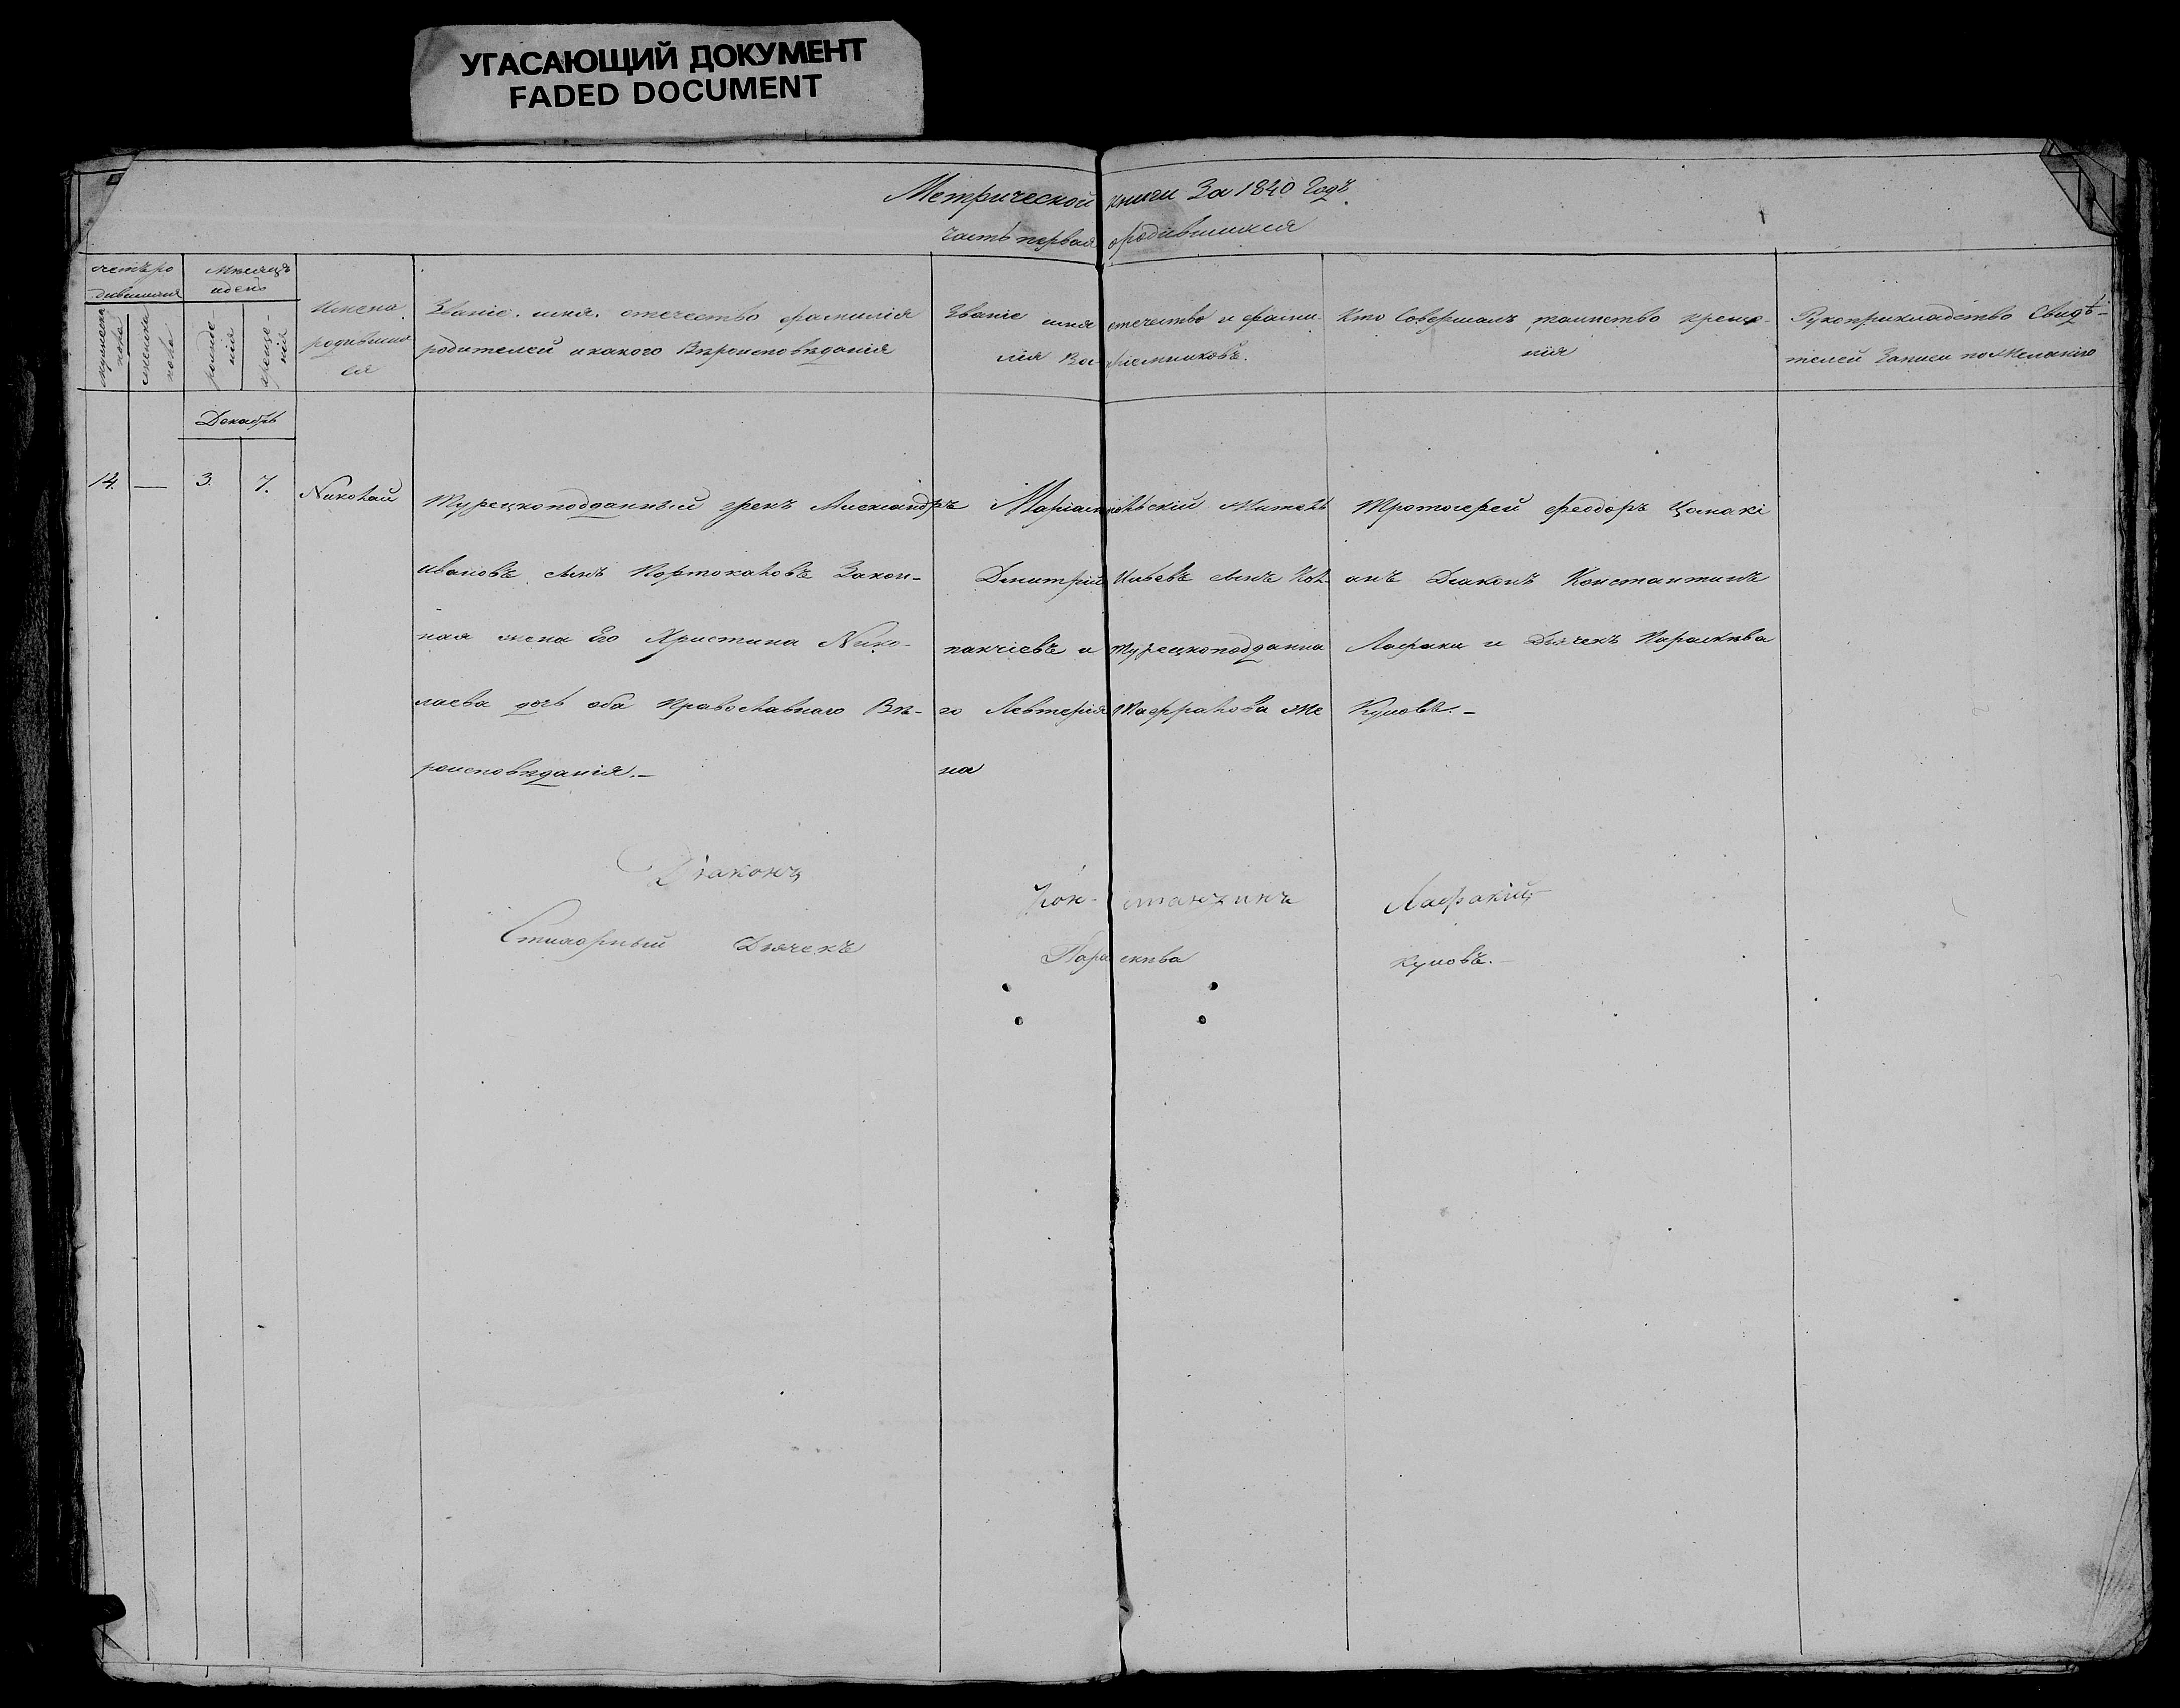 УГАСАЮЩИЙ ДОКУМЕНТ
FADED DOCUMENT
Метрической книги За 1840 Годъ.
часть первая о родившихся
Мѣсяцъ
и день
Имена
родивших
ся
Званіе. имя. отечество фамилія
родителей и какого Вѣроисповѣданія
Званіе имя отечество и фами-
лія Вос пріемниковъ.
Кто Совершалъ таинство креще-
нія
Рукоприкладство Свидѣ-
телей Записи по Желанію
мужеска
пола
женска
пола
рожде-
нія
креще-
нія
Декабрь
14. — 3. 7. Николай
Турецкоподданный грекъ Александръ
Ивановъ сынъ Портокаловъ Закон-
ная жена Его Христина Нико-
лаева дочь оба Православнаго Вѣ-
роисповѣданія.—
Маріупольскій Житель
Димитрій
панчіевъ и турецкоподданна
го Левтерія Мафралова же
на
Протоіерей Феодоръ
Діаконъ Константинъ
Лафаки и Дьячекъ Параскева
Куповъ.—
Діаконъ Кон- стантинъ Лафакій
Стихарный Дьячекъ Пара скева Куповъ.